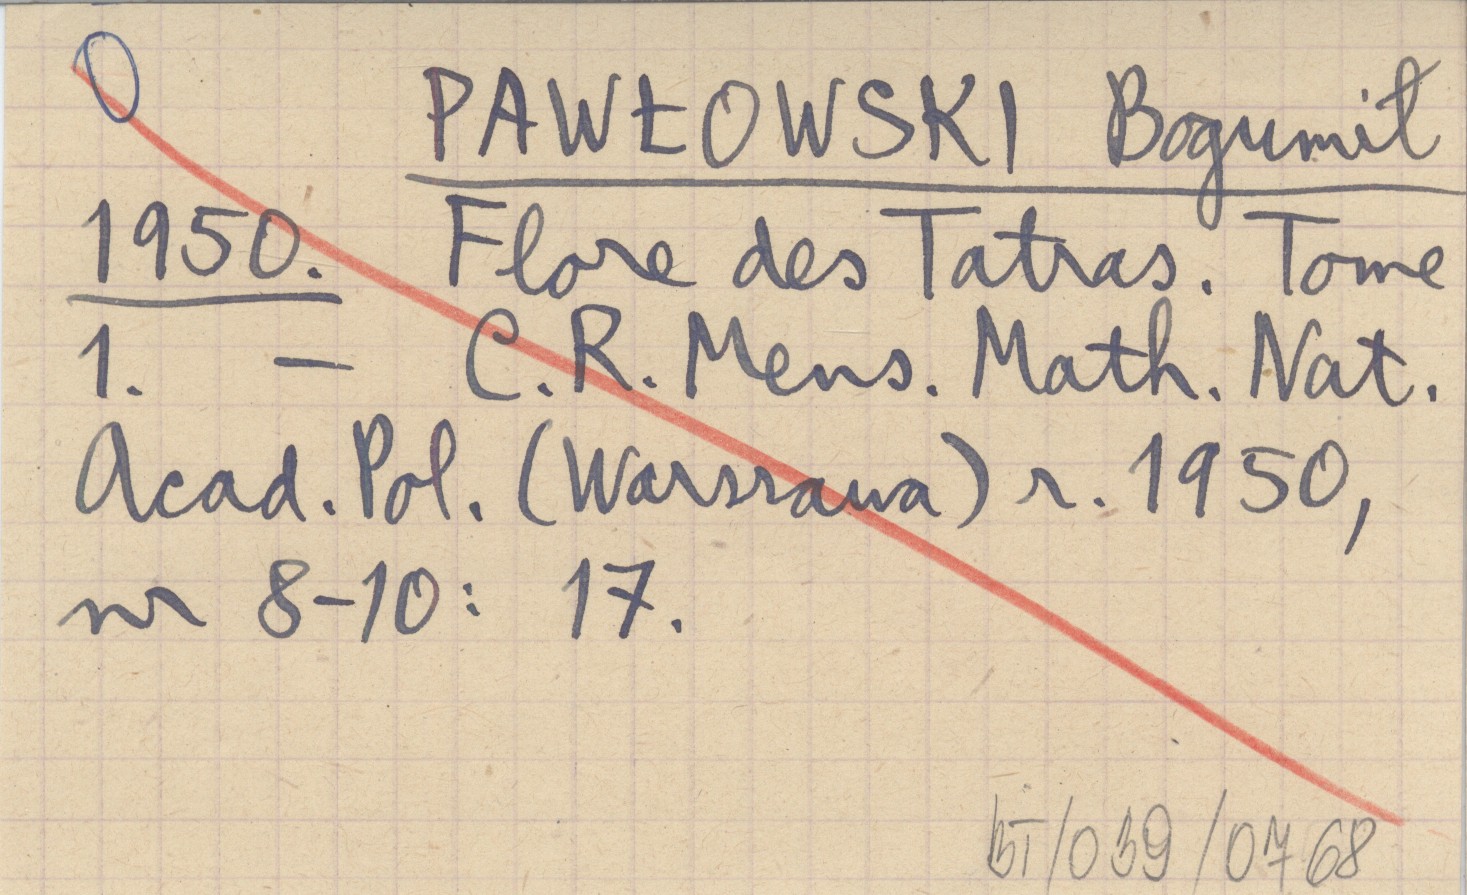 O
PAWŁOWSKI Bogumił
1950. Flore des Tatras. Tome
1. — C.R. Mens. Math. Nat.
Acad. Pol. (Warszawa) r. 1950,
nr 8-10: 17.
BT/039/0768